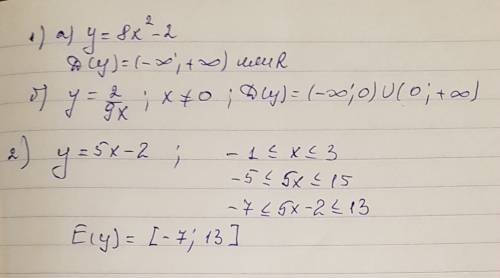 1) а) y = 8x² - 2
D(y) = (-∞; +∞) или R
б) y = 2/9x ; x ≠ 0 ; D(y) = (-∞; 0) U (0; +∞)
2) y = 5x - 2 ; -1 ≤ x ≤ 3
-5 ≤ 5x ≤ 15
-7 ≤ 5x - 2 ≤ 13
E(y) = [-7; 13]